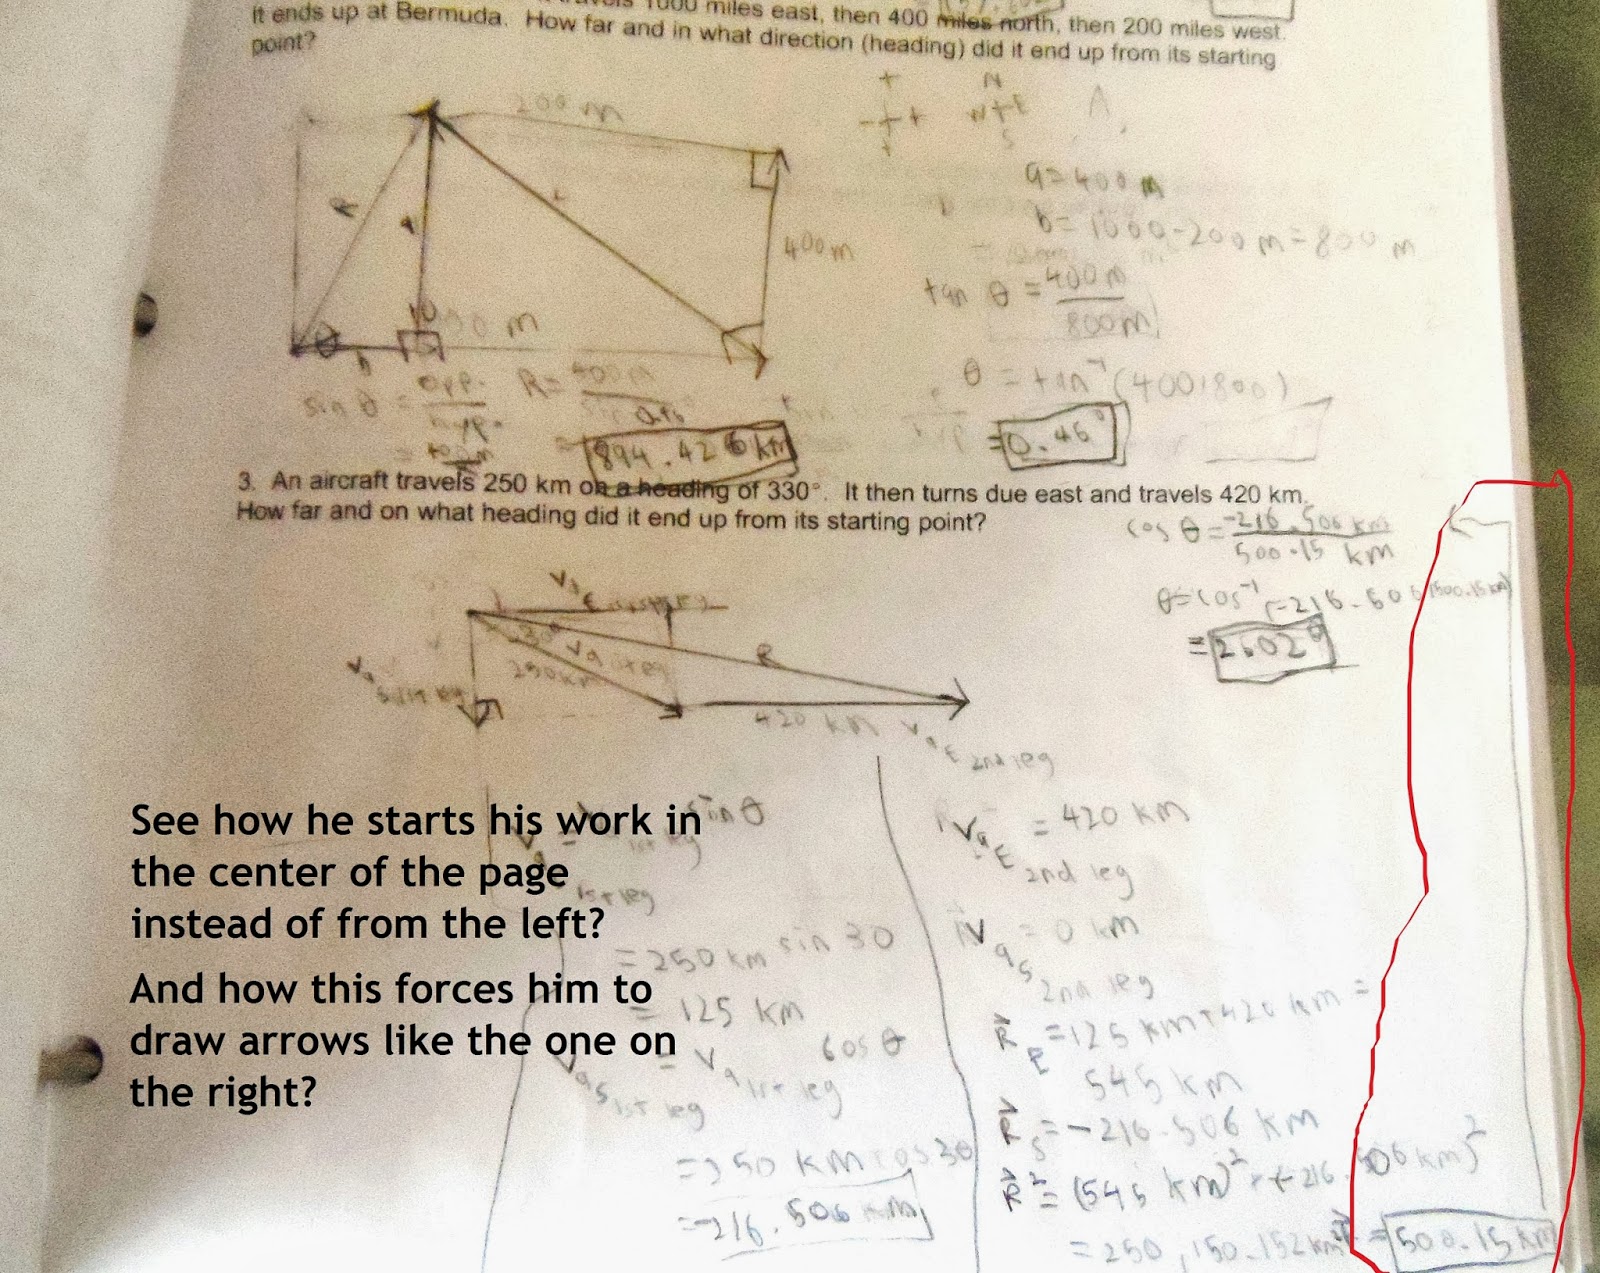 1000 miles east, then 400 miles north, then 200 miles west.
It ends up at Bermuda. How far and in what direction (heading) did it end up from its starting
point?
200 m
+
- + +
N
W + E
S
A
a = 400 m
b = 1000-200 m = 800 m
R
a
L
400 m
tan θ = 400 m
800 m
θ
m
θ = tan⁻¹(400/800)
= 0.46°
sin θ = opp.
hyp.
R = 400 m
= 894.426 km
3. An aircraft travels 250 km on a heading of 330°. It then turns due east and travels 420 km.
How far and on what heading did it end up from its starting point?
cos θ = -216.506 km
500.15 km
θ = cos⁻¹(-216.506/500.15 km)
30°
250 km
R
420 km
2nd leg
See how he starts his work in
the center of the page
instead of from the left?
And how this forces him to
draw arrows like the one on
the right?
sin θ
1st leg
= 250 km sin 30
= 125 km
cos θ
1st leg
1st leg
= 250 km cos 30
= -216.506 km
= 420 km
2nd leg
= 0 km
2nd leg
R E = 125 km + 420 km =
545 km
R S = -216.506 km
R² = (545 km)² + (-216.506 km)²
= 500.15 km